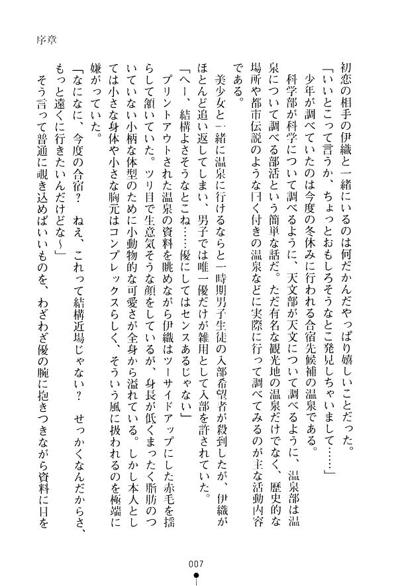 序章
初恋の相手の伊織と一緒にいるのは何だかんだやっぱり嬉しいことだった。
「いいとこって言うか、ちょっとおもしろそうなとこ発見しちゃいまして……」
少年が調べていたのは今度の冬休みに行われる合宿先候補の温泉である。
科学部が科学について調べるように、天文部が天文について調べるように、温泉部は温
泉について調べる部活という簡単な話だ。ただ有名な観光地の温泉だけでなく、歴史的な
場所や都市伝説のような曰く付きの温泉などに実際に行って調べてみるのが主な活動内容
である。
美少女と一緒に温泉に行けるならと一時期男子生徒の入部希望者が殺到したが、伊織が
ほとんど追い返してしまい、男子では唯一優だけが雑用として入部を許されていた。
「へー、結構よさそうなとこね……優にしてはセンスあるじゃない」
プリントアウトされた温泉の資料を眺めながら伊織はツーサイドアップにした赤毛を揺
らして頷いていた。ツリ目で生意気そうな顔をしているが、身長が低くまったく脂肪のつ
いていない小柄な体型のために小動物的な可愛さが全身から溢れている。しかし本人とし
ては小さな身体や小さな胸元はコンプレックスらしく、そういう風に扱われるのを極端に
嫌がっていた。
「なになに、今度の合宿? ねえ、これって結構近場じゃない? せっかくなんだからさ、
もっと遠くに行きたいんだけどな〜」
そう言って普通に覗き込めばいいものを、わざわざ優の腕に抱きつきながら資料に目を
007